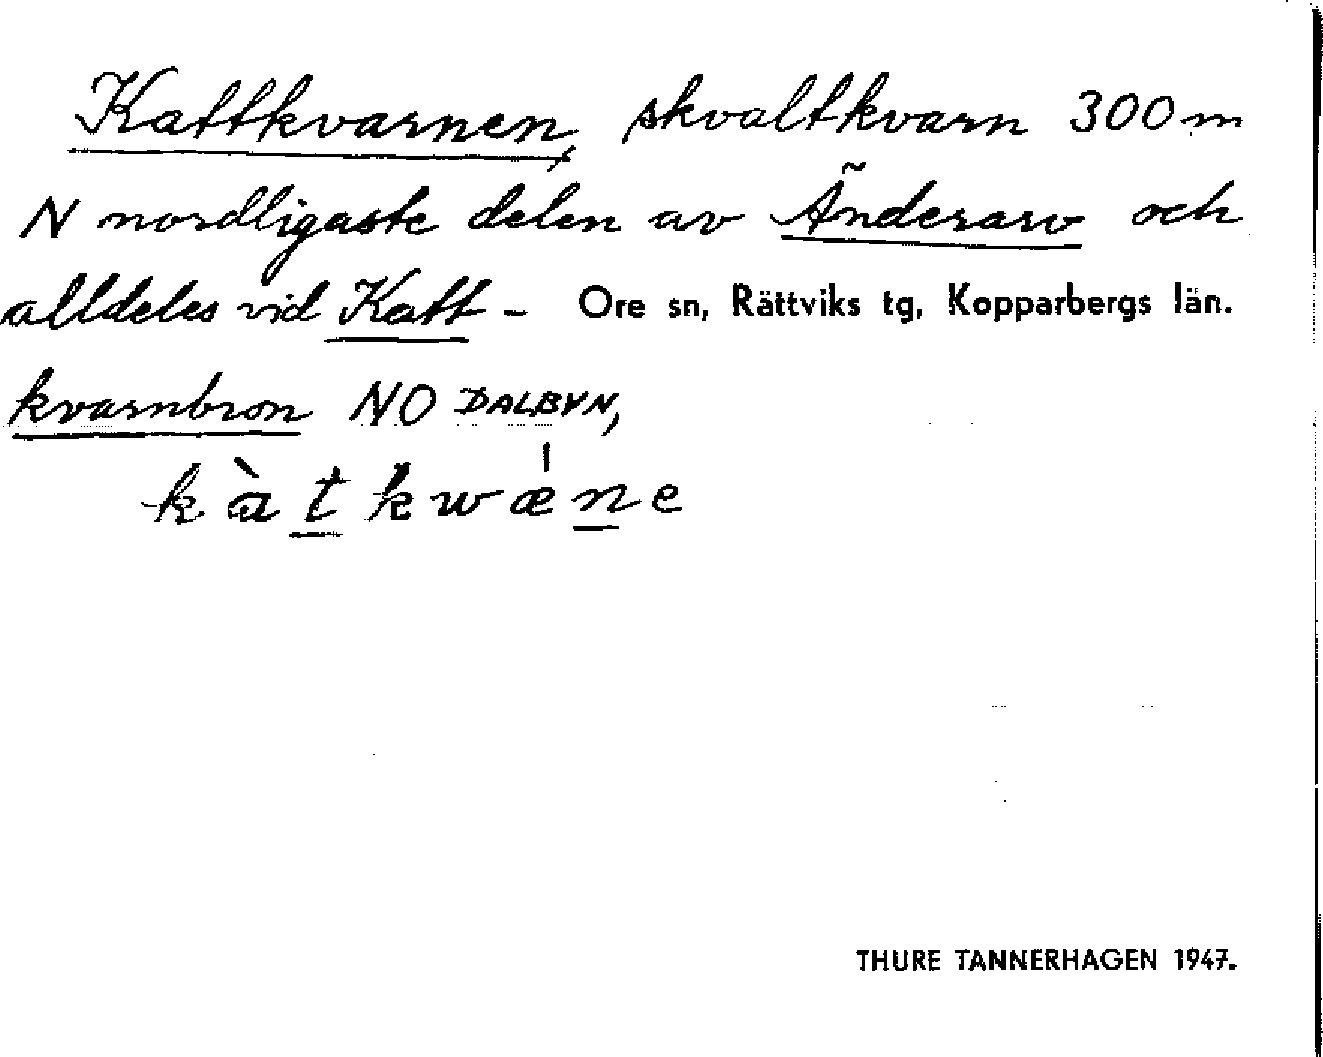 Kattkvarnen, skvaltkvarn 300 m
N nordligaste delen av Änderarv och
alldeles vid Katt- Ore sn, Rättviks tg, Kopparbergs län.
kvarnbron NO DALBYN,
kàtkwǽne
THURE TANNERHAGEN 1947.